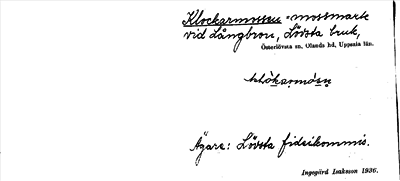 Klockarmossen - mossmark
vid Långbron, Lövsta bruk,
Österlövsta sn, Olands hd, Uppsala län.
Ägare: Lövsta fideikommis.
Ingegärd Isaksson 1936.